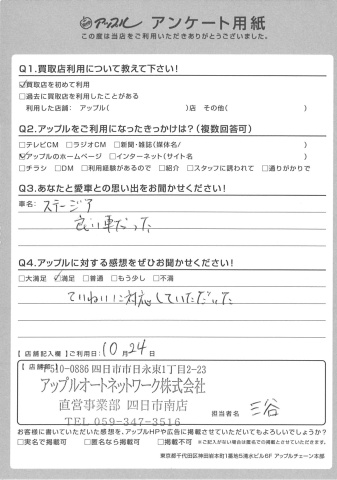 アップル アンケート用紙
この度は当店をご利用いただきありがとうございました。
Q1.買取店利用について教えて下さい!
☑買取店を初めて利用
□過去に買取店を利用したことがある
利用した店舗: アップル( )店 その他( )
Q2.アップルをご利用になったきっかけは?(複数回答可)
□テレビCM □ラジオCM □新聞・雑誌(媒体名/ )
☑アップルのホームページ □インターネット(サイト名 )
□チラシ □DM □利用経験があるので □紹介 □スタッフに誘われて □通りがかりで
Q3.あなたと愛車との思い出をお聞かせください!
車名: ステージア
良い車だった
Q4.アップルに対する感想をぜひお聞かせください!
□大満足 ☑満足 □普通 □もう少し □不満
ていねいに対応していただいた
【店舗記入欄】ご利用日: 10月24日
【店舗名】
〒510-0886 四日市市日永東1丁目2-23
アップルオートネットワーク株式会社
直営事業部 四日市南店
TEL 059-347-3516
担当者名 三谷
お客様に書いていただいた感想を、アップルHPや広告に掲載させていただいてもよろしいでしょうか?
□実名で掲載可 □匿名なら掲載可 □掲載不可 ※ご記入がない場合は匿名での掲載とさせていただきます。
東京都千代田区神田岩本町1番地5清水ビル6F アップルチェーン本部